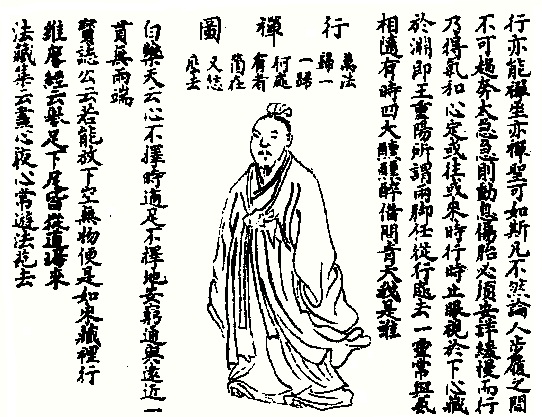 行亦能禪坐亦禪聖可如斯凡不然論人步履之間
不可趨奔太急急則動息傷胎必須安詳緩慢而行
乃得氣和心定或往或來時行時止眼視於下心藏
於淵即王重陽所謂兩脚任從行處去一靈常與氣
相隨有時四大醺醺醉借問青天我是誰
行禪圖
萬法
歸一
一歸
何處
有者
箇在
又恁
麽去
白樂天云心不擇時適足不擇地安窮通與遠近一
貫無兩端
寶誌公云若能放下空無物便是如來藏裡行
維摩經云舉足下足皆從道場來
法藏集云晝心夜心常遊法苑去